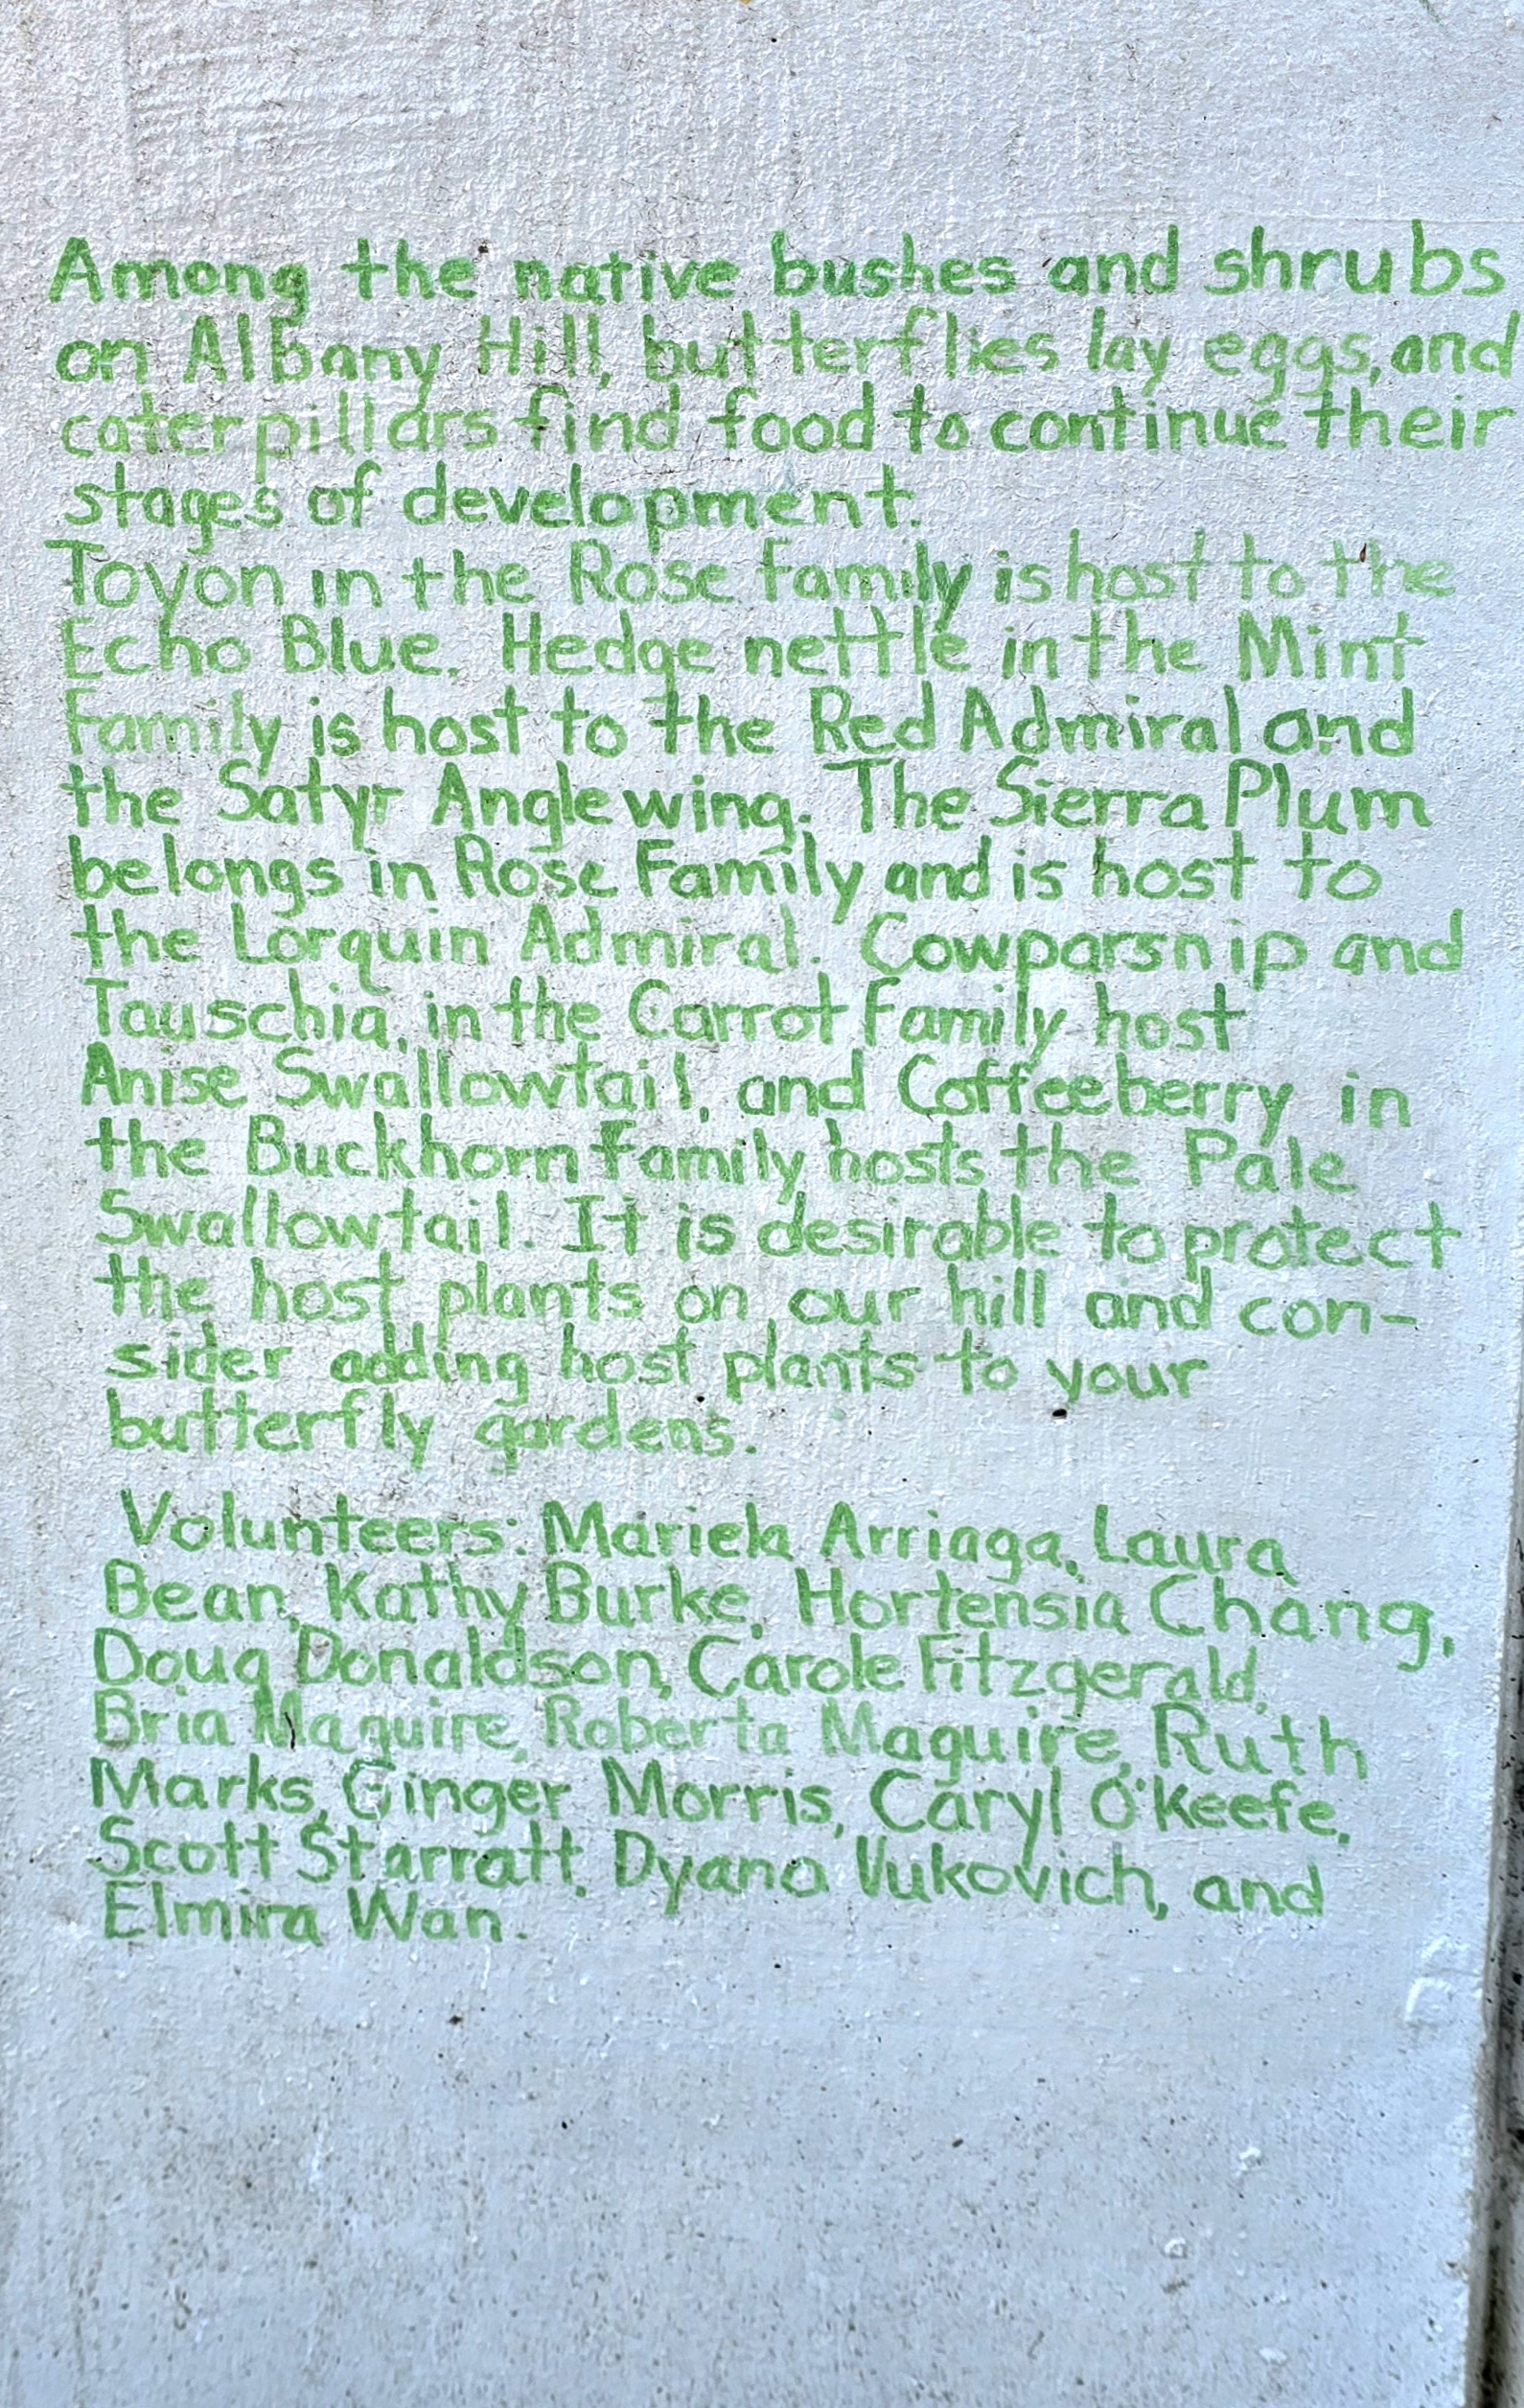 Among the native bushes and shrubs
on Albany Hill, butterflies lay eggs, and
caterpillars find food to continue their
stages of development.
Toyon in the Rose family is host to the
Echo Blue. Hedge nettle in the Mint
Family is host to the Red Admiral and
the Satyr Anglewing. The Sierra Plum
belongs in Rose Family and is host to
the Lorquin Admiral. Cowparsnip and
Tauschia, in the Carrot Family host
Anise Swallowtail, and Coffeeberry in
the Buckhorn Family hosts the Pale
Swallowtail. It is desirable to protect
the host plants on our hill and con-
sider adding host plants to your
butterfly gardens.
Volunteers: Mariela Arriaga, Laura
Bean, Kathy Burke, Hortensia Chang,
Doug Donaldson, Carole Fitzgerald,
Bria Maguire, Roberta Maguire, Ruth
Marks, Ginger Morris, Caryl O'Keefe,
Scott Starratt, Dyana Vukovich, and
Elmira Wan.